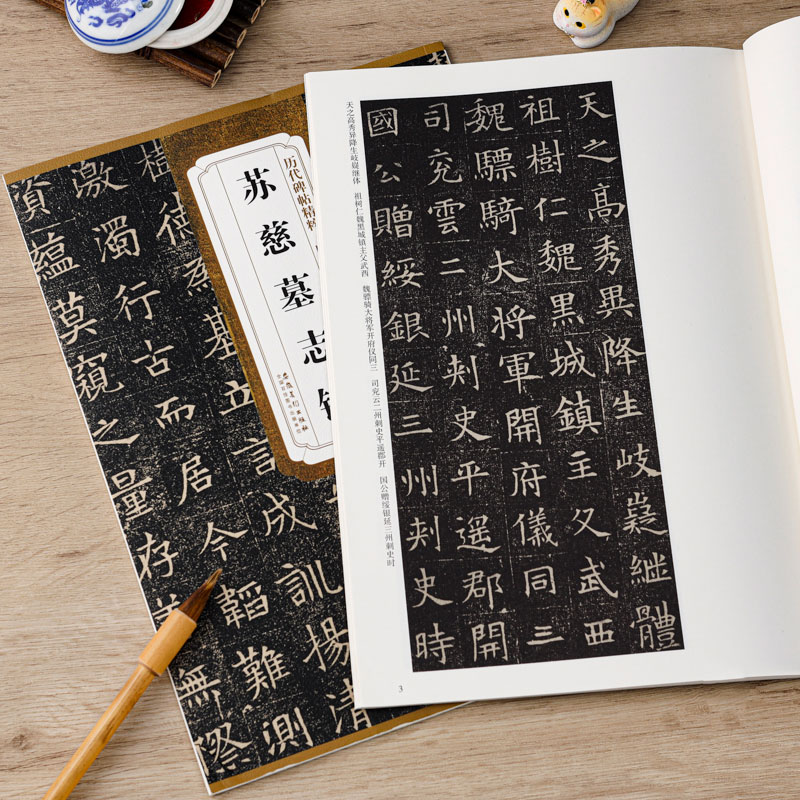 天之髙秀異降生岐嶷繼體
祖樹仁魏黑城鎮主父武西
魏驃騎大將軍開府儀同三
司兖雲二州刾史平遥郡開
國公贈綏銀延三州刾史時
天之高秀异降生岐嶷继体 祖树仁魏黑城镇主父武西 魏骠骑大将军开府仪同三 司兖云二州刺史平遥郡开 国公赠绥银延三州刺史时
3
历代碑帖精粹
苏慈墓志
安徽美术出版社
全国百佳图书出版单位
樹德 立 成訓揚清
激濁行古而居今韜難測
資蘊莫窺之量存 無際